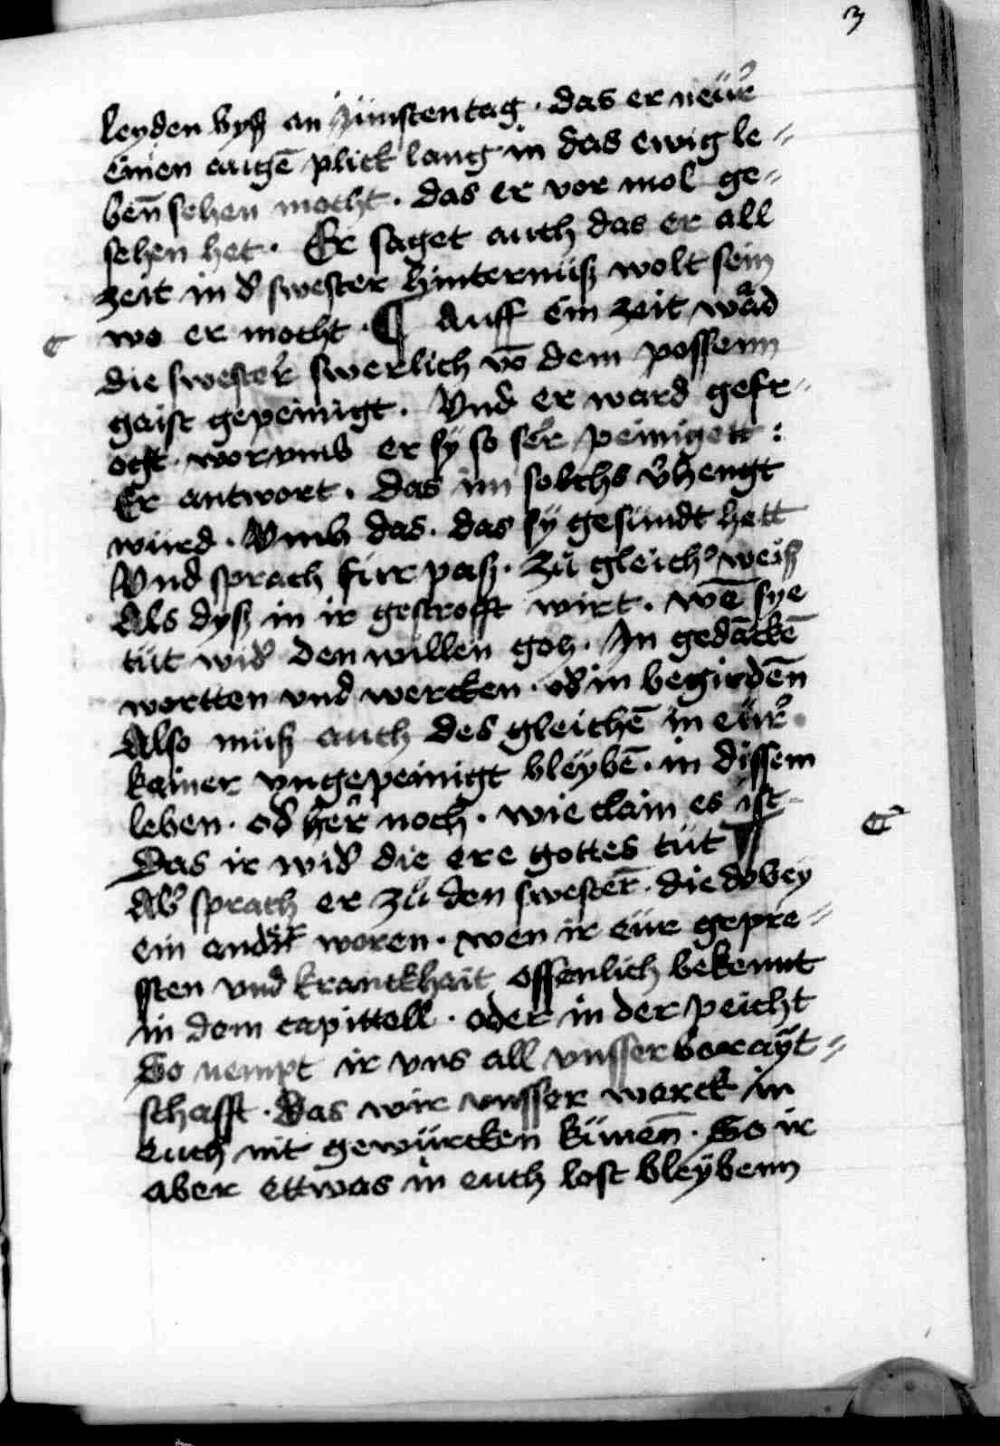 3
leyden byß an Jümstentag · das er neür
einen augē plick lang in das ewig le=
ben̄ sehen mocht · das er vor mol ge=
sehen het · Er saget auch das er all
zeit in d̕ swester hinternüß wolt sein
wo er mocht · ¶ Auff ein zeit ward
die swester swerlich vō dem possenn
gaist gepeinigt · Vnd er ward gefr=
ogt · worvmb er sÿ so ser peinigett :
Er antwort · Das im solichs v̕hengt
würd · Vmb das · das sÿ gesündt hett
Vnd sprach fürpaß · zu gleicher weiß
Als dyß in ir gestrofft wirt · wē sye
tüt wid̕ den willen gotz · In gedāckē
wortten vnd wercken · od̕ in begirdēn
Also müß auch des gleichē in eür
kainer vngepeinigt bleybē · in dissem
leben · od̕ her noch · wie clain es ist
Das ir wid̕ die ere gottes tüt ¶
Ab̕ sprach er zu den swester̄ · die dobey
ein ander woren · wen ir eür gepre=
sten vnd kranckhait offenlich bekennt
in dem capittell · oder in der peicht
So nempt ir vns all vnsser berayt=
schafft · Das wir vnsser werck in
euch nit gewürcken künen̄ · So ir
aber ettwas in euch lost bleÿbenn